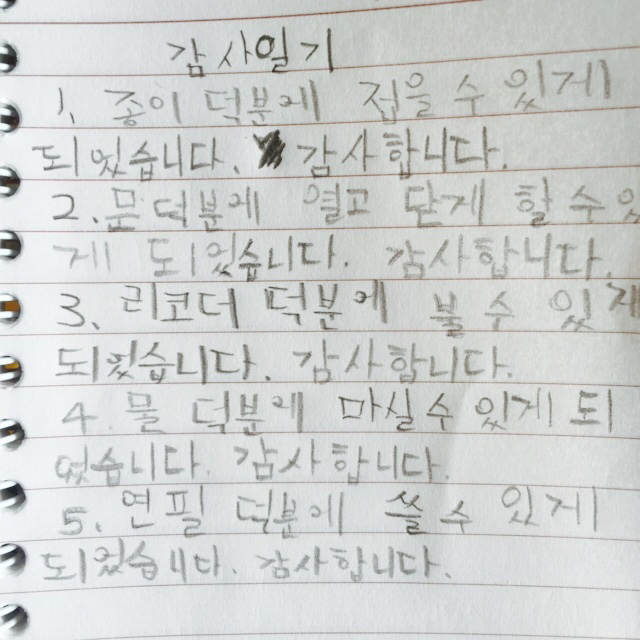 감사일기
1. 종이 덕분에 적을 수 있게
되었습니다. 감사합니다.
2. 문 덕분에 열고 닫게 할 수 있
게 되있습니다. 감사합니다.
3. 리코더 덕분에 불 수 있게
되었습니다. 감사합니다.
4. 물 덕분에 마실 수 있게 되
었습니다. 감사합니다.
5. 연필 덕분에 쓸 수 있게
되었습니다. 감사합니다.